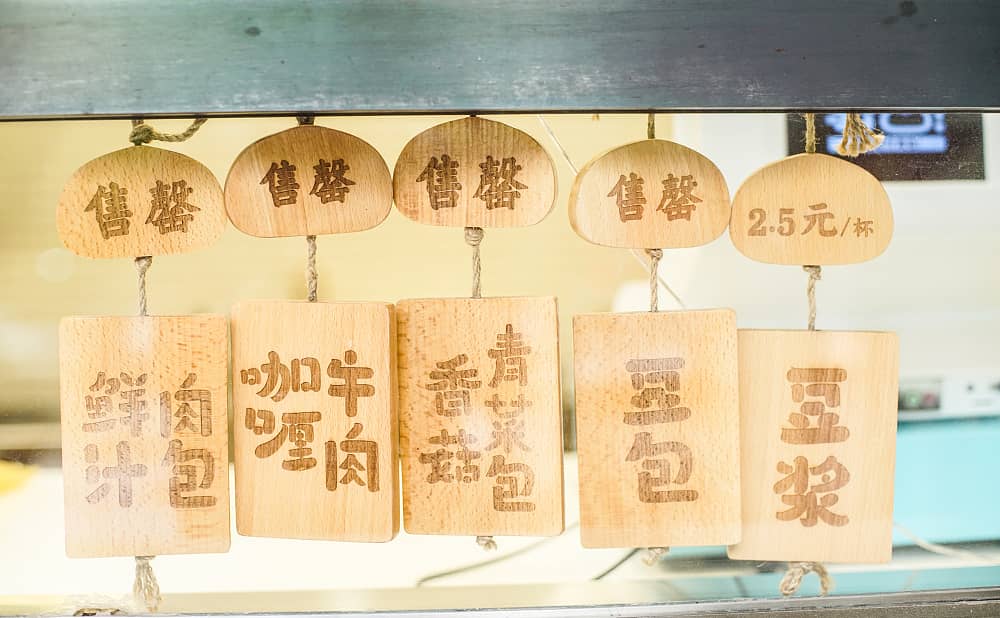 售罄
鲜汁
肉包
售罄
咖喱
牛肉
售罄
香菇
青菜包
售罄
豆包
2.5元/杯
豆浆